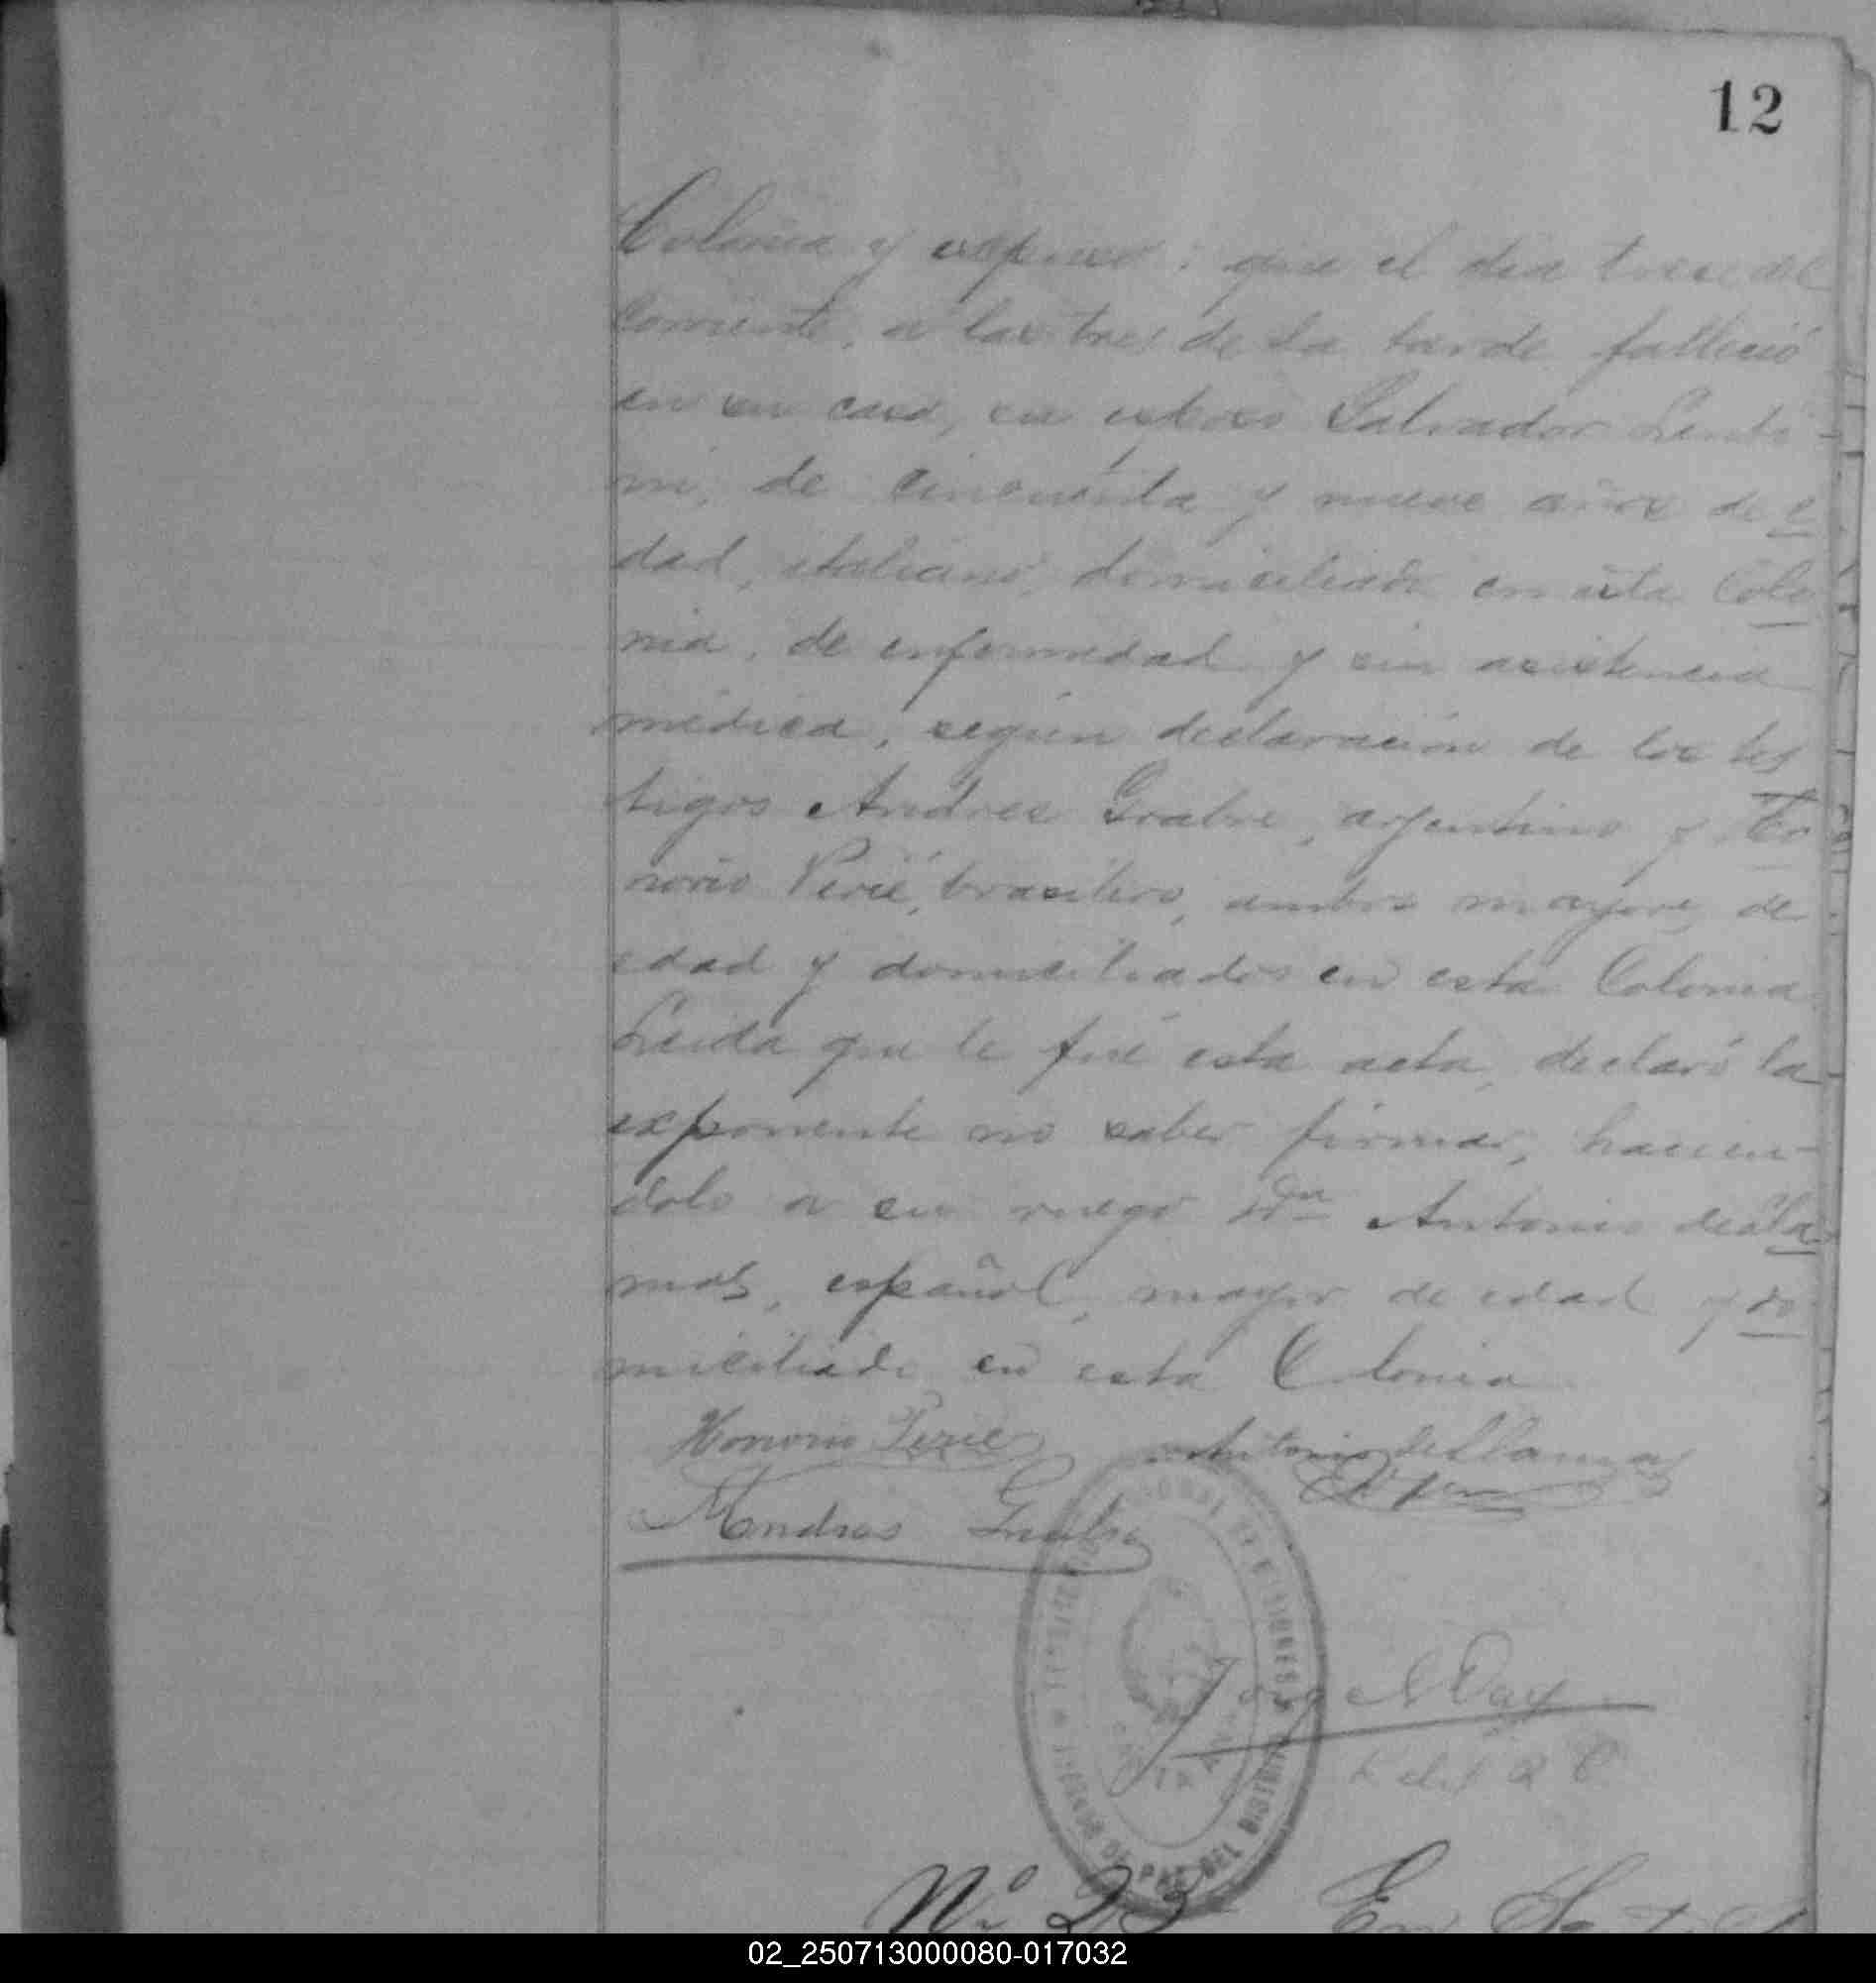 12
Colonia y expuso: que el dia trece del
corriente, a las tres de la tarde falleció
en su casa, su esposo Salvador Lento-
ni, de cincuenta y nueve años de e
dad, italiano, domiciliado en esta Colo
nia, de enfermedad y sin asistencia
médica, según declaración de los tes
tigos Andres Grabre, argentino y
norio Perié, brasilero, ambos mayores de
edad y domiciliados en esta Colonia
Leida que le fué esta acta, declaró la
exponente no saber firmar, hacien-
dolo a su ruego Dn Antonio de Lla
mas, español, mayor de edad y do
miciliado en esta Colonia
Honorio Perié Antonio de Llamas
Andres
Jorge
Nº 23 En
02_250713000080-017032